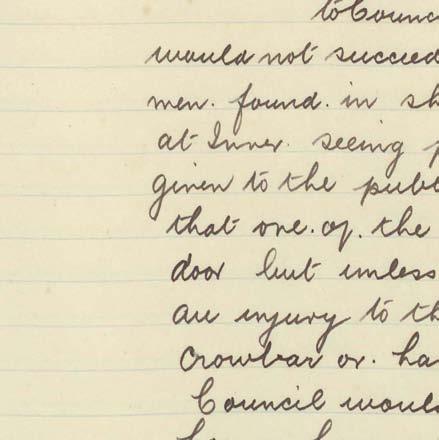 to Counc
would not succeed
men. found. in sh
at Inner. seeing p
given to the publ
that one. of. the
door but unless
an injury to th
crowbar or. ha
Council would